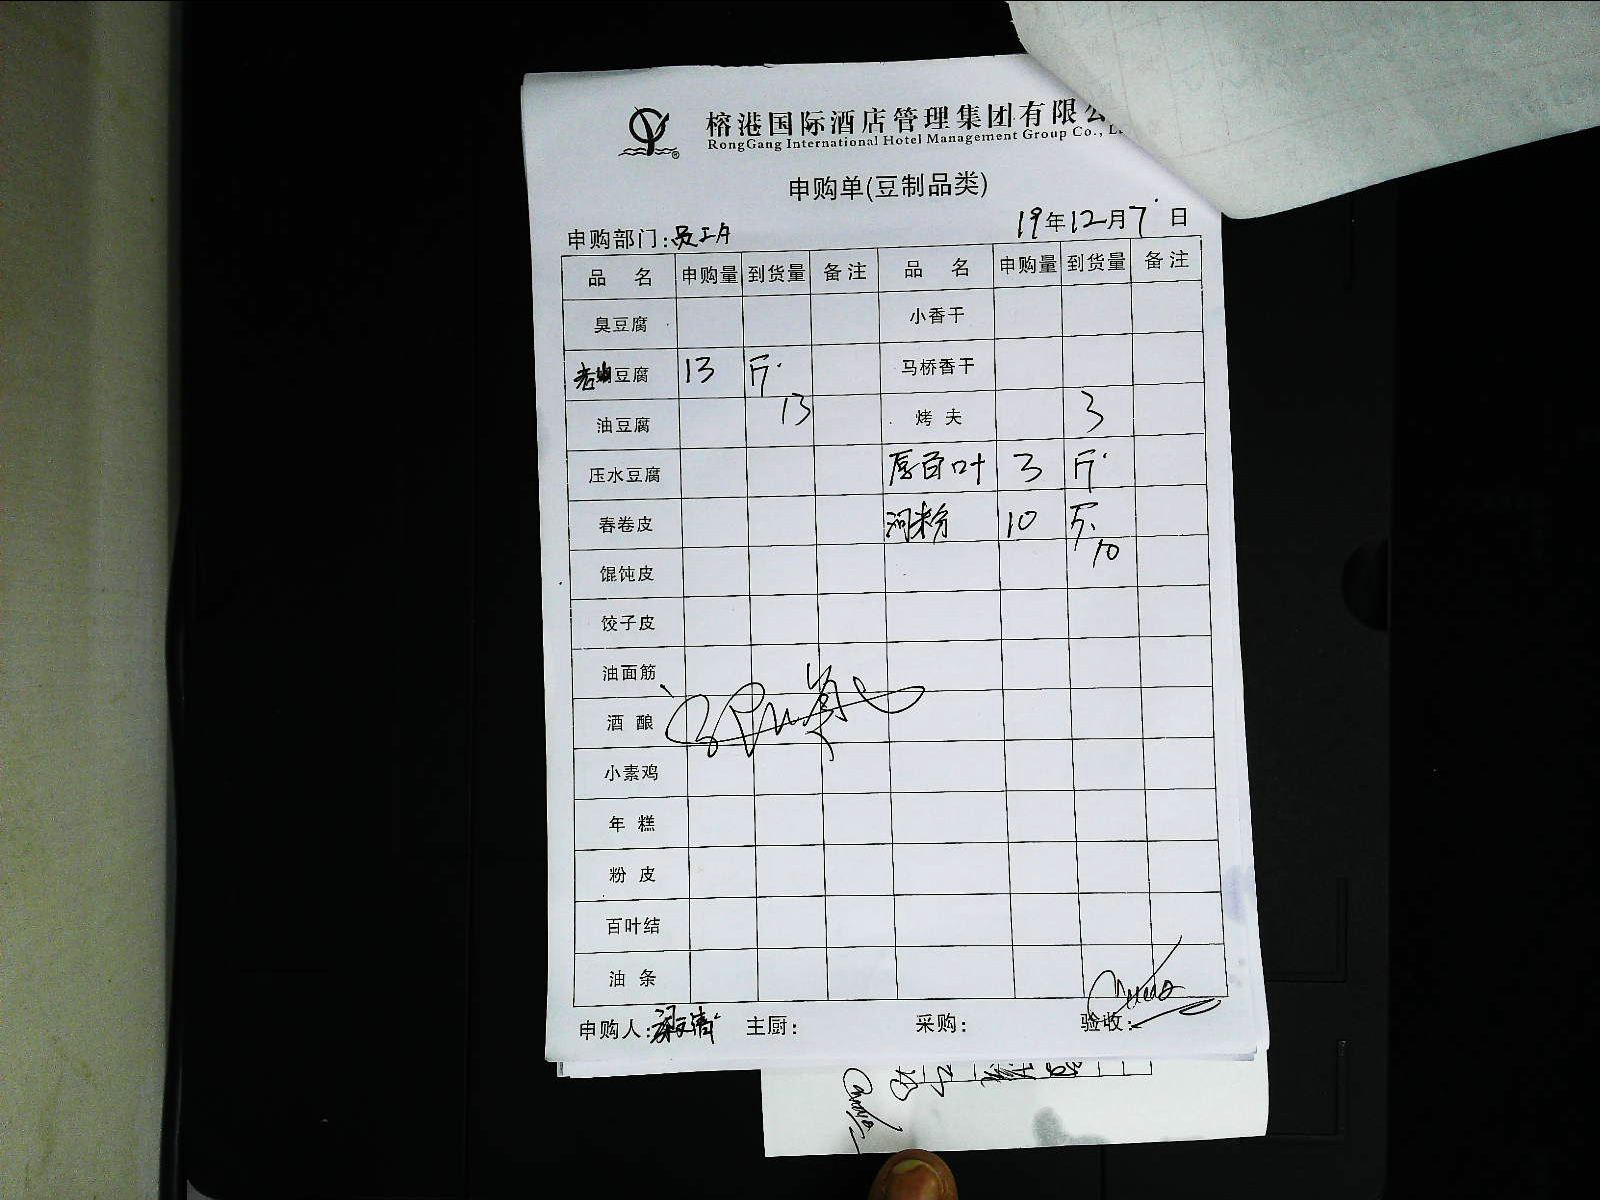 榕港国际酒店管理集团有限公
RongGang International Hotel Management Group Co., L
申购单(豆制品类)
申购部门: 员工
19年12月7日
品 名 申购量 到货量 备注 品 名 申购量 到货量 备注
臭豆腐 小香干
老豆腐 13 斤 马桥香干
油豆腐 13 烤 夫 3
压水豆腐 厚百叶 3 斤
春卷皮 河粉 10 斤
馄饨皮 10
饺子皮
油面筋
酒 酿
小素鸡
年 糕
粉 皮
百叶结
油 条
申购人: 主厨: 采购: 验收: